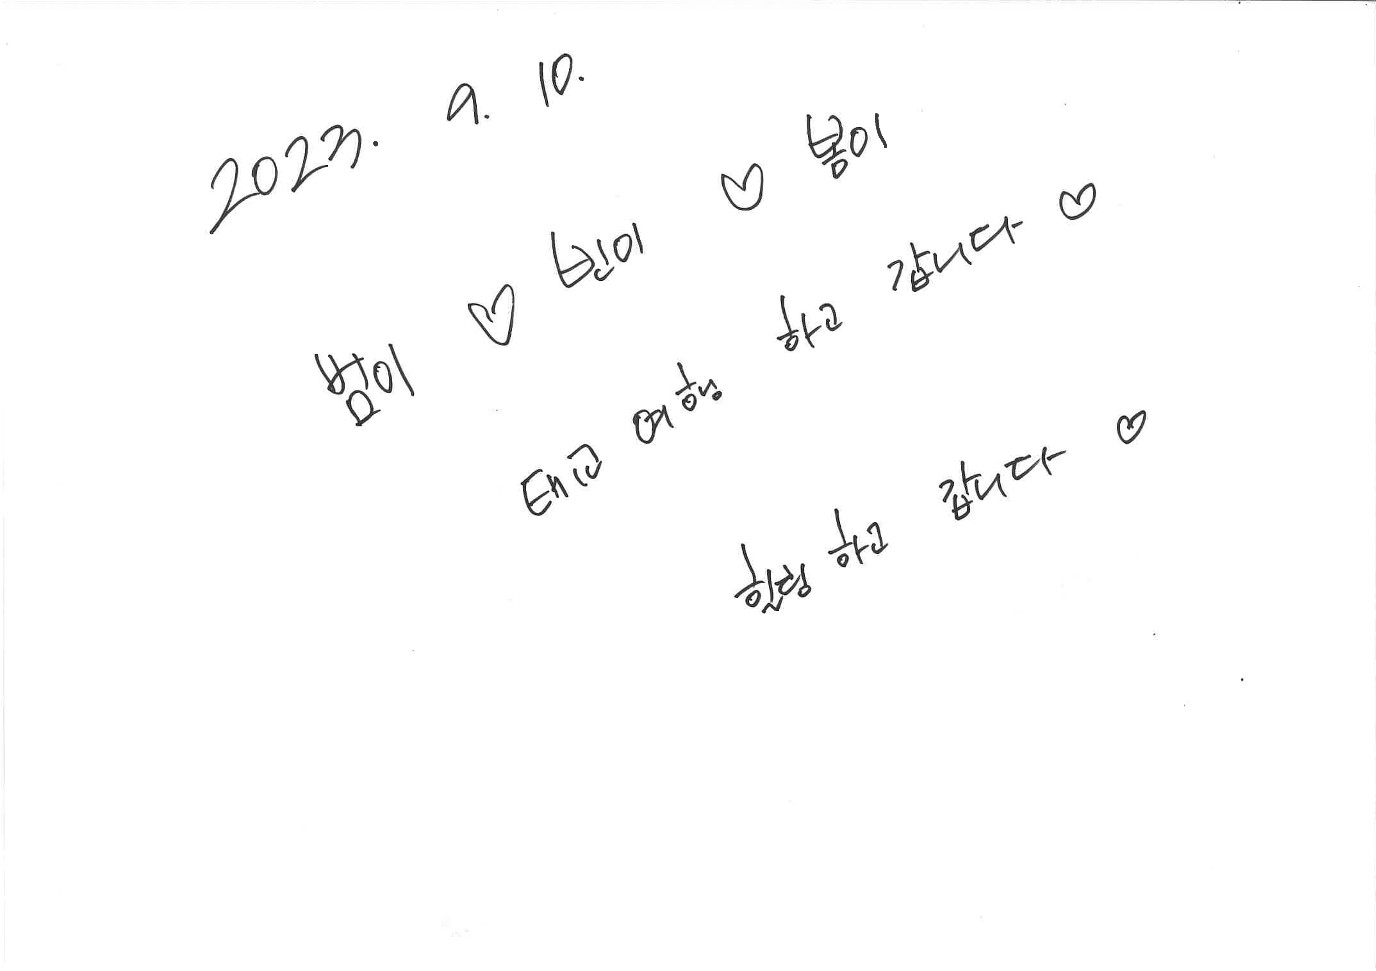 2023. 9. 10.
범이 ♡ 빈이 ♡ 봄이
태교 여행 하고 갑니다 ♡
힐링 하고 갑니다 ♡